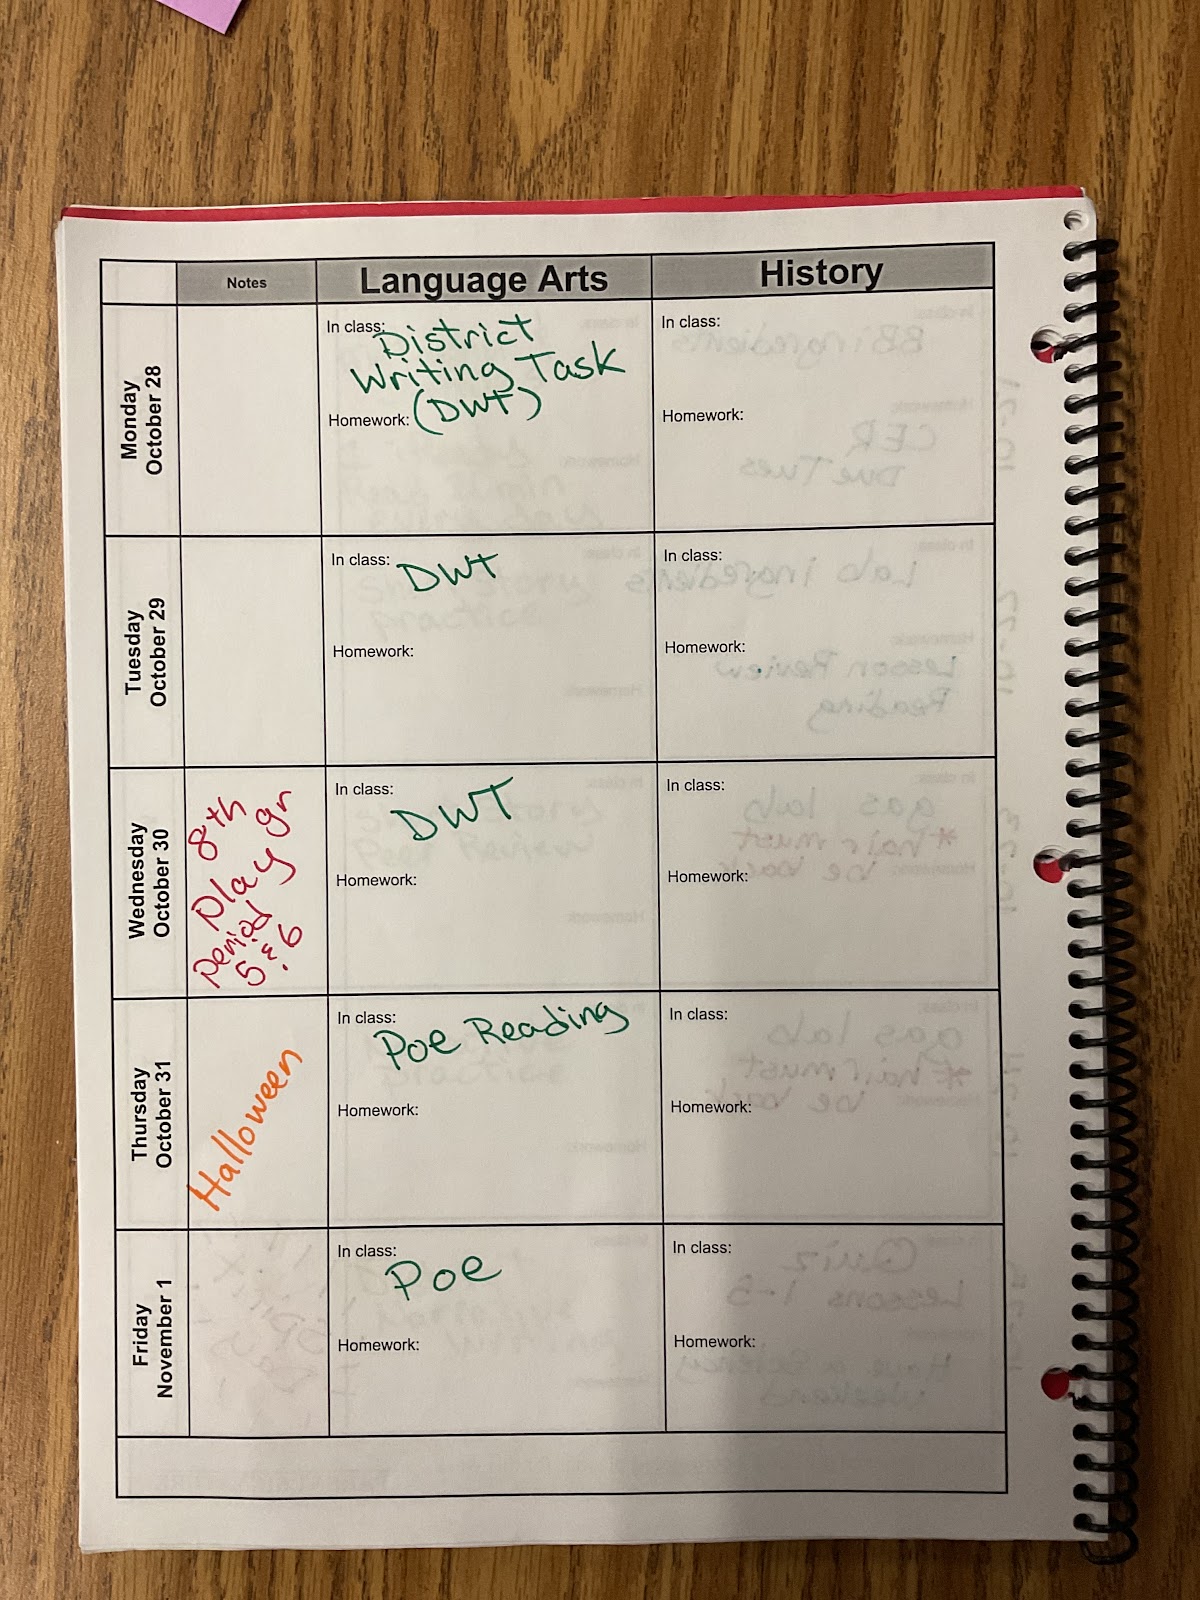 Notes
Language Arts
History
Monday
October 28
In class:
District
Writing Task
(DWT)
Homework:
In class:
Homework:
Tuesday
October 29
In class: DWT
Homework:
In class:
Homework:
Wednesday
October 30
8th gr
play
period
5 & 6
In class: DWT
Homework:
In class:
Homework:
Thursday
October 31
Halloween
In class:
Poe Reading
Homework:
In class:
Homework:
Friday
November 1
In class:
Poe
Homework:
In class:
Homework: